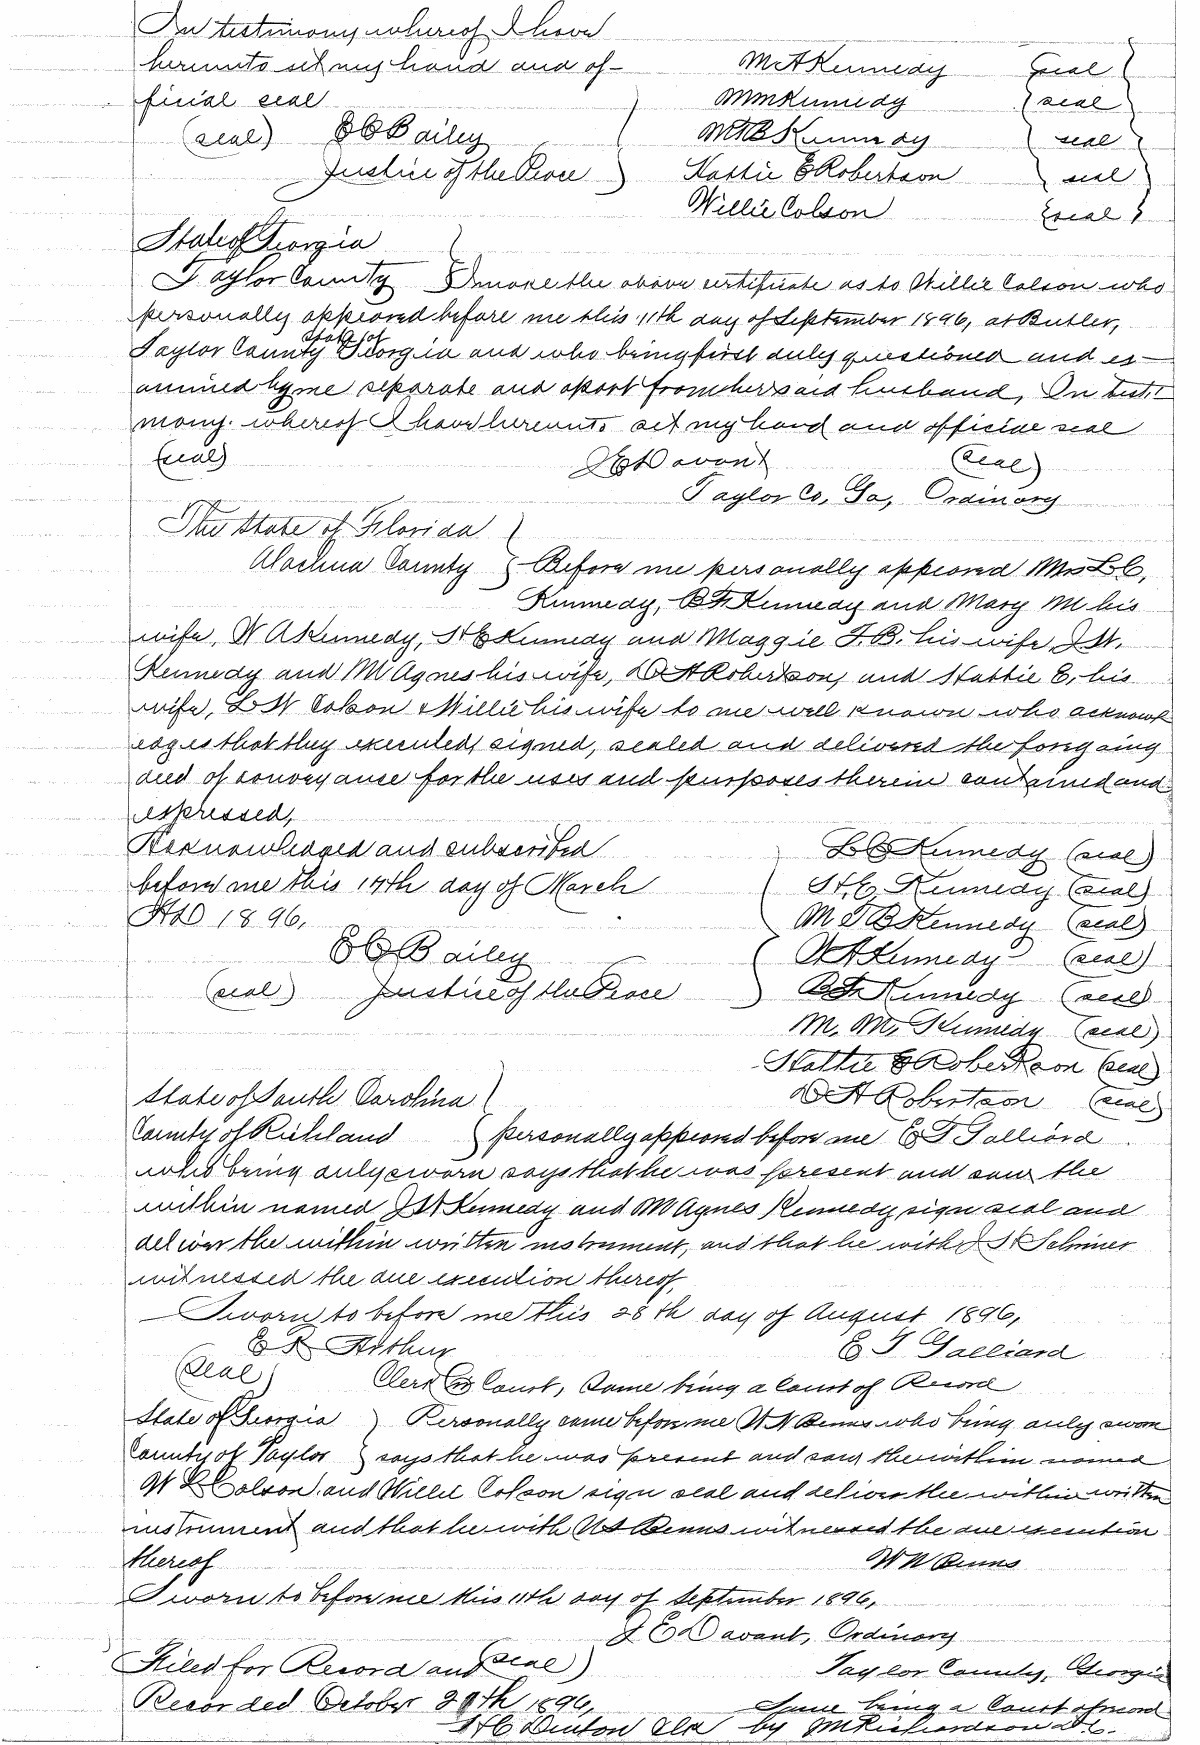 In testimony whereof I have
hereunto set my hand and of-
ficial seal
M A Kennedy seal
M M Kennedy (seal
(seal) E C Bailey
M F B Kennedy seal
Justice of the Peace
Hattie E Robertson seal
Willie Colson (seal)
State of Georgia
Taylor County I make the above certificate as to Willie Colson who
personally appeared before me this 11th day of September 1896, at Butler,
Taylor County State of Georgia and who being first duly questioned and ex-
amined by me separate and apart from her said husband, In testi-
mony. whereof I have hereunto set my hand and official seal
(seal) Davant (seal)
Taylor Co, Ga, Ordinary
The State of Florida
Alachua County Before me personally appeared Mrs L C,
Kennedy, B F Kennedy and Mary M his
wife, W A Kennedy, H C Kennedy and Maggie F. B. his wife, J H.
Kennedy and M Agnes his wife, D H Robertson, and Hattie E, his
wife, Colson & Willie his wife to me well known who acknowl
edges that they executed, signed, sealed and delivered the foregoing
deed of conveyance for the uses and purposes therein contained and
expressed,
Acknowledged and subscribed
L C Kennedy (seal)
before me this 17th day of March
H C Kennedy (seal)
A D 1896,
M F B Kennedy (seal)
E C Bailey
W A Kennedy (seal)
(seal) Justice of the Peace
B F Kennedy (seal)
M. M, Kennedy (seal)
Hattie E Robertson (seal)
D H Robertson (seal)
State of South Carolina
County of Richland personally appeared before me E T Galliard
who being duly sworn says that he was present and saw the
within named J H Kennedy and M Agnes Kennedy sign seal and
deliver the within written instrument, and that he with
witnessed the due execution thereof,
Sworn to before me this 28th day of August 1896,
E R Arthur E T Galliard
(Seal) Clerk of Court, Same being a Court of Record
State of Georgia Personally came before me W N Benns who being duly sworn
County of Taylor says that he was present and saw the within named
Colson and Willie Colson sign seal and deliver the within written
instrument and that he with Benns witnessed the due execution
thereof W N Benns
Sworn to before me this 11th day of September 1896,
J E Davant, Ordinary
Filed for Record and (seal) Taylor County, Georgia
Recorded October 29th 1896, Same being a Court of record
H C Denton Clk by M Richardson D C.